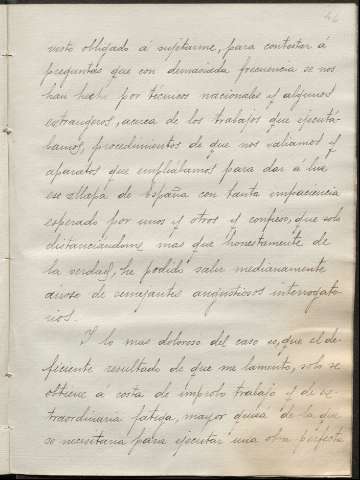 46
visto obligado á sujetarme, para contestar á
preguntas que con demasiada frecuencia se nos
han hecho por técnicos nacionales y algunos
extrangeros, acerca de los trabajos que ejecutá-
bamos, procedimientos de que nos valiamos y
aparatos que empleábamos para dar á luz
ese Mapa de España con tanta impaciencia
esperado por unos y otros y confieso, que solo
distanciándome mas que honestamente de
la verdad, he podido salir medianamente
airoso de semejantes angustiosos interrogato-
rios.
Y lo mas doloroso del caso es, que el de-
ficiente resultado de que me lamento, solo se
obtiene á costa de improbo trabajo y de ex-
traordinaria fatiga, mayor quizá de la que
se necesitaria para ejecutar una obra perfecta